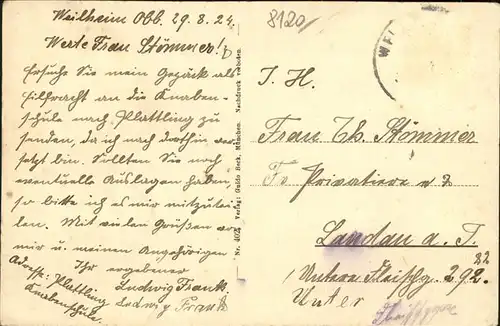 Weilheim Obb. 29.8.24.
Werte Frau Stömmer!
Ersuche Sie mein Gepäck als
Eilfracht an die Knaben-
schule nach Plattling zu
senden, da ich nach dorthin ver-
setzt bin. Sollten Sie noch
eventuelle Auslagen haben,
so bitte ich es mir mitzutei-
len. Mit vielen Grüßen von
mir u. meinen Angehörigen
Ihr ergebener
Ludwig Frank
Adresse: Plattling
Knabenschule.
Ludwig Frank
Nr. 402 Verlag: Guido Beck, München. Nachdruck verboten.
8120
WEI
I. H.
Frau Th. Stömmer
Privatiere
Landau a. I.
Untere Fleischg. 292.
22
Unter